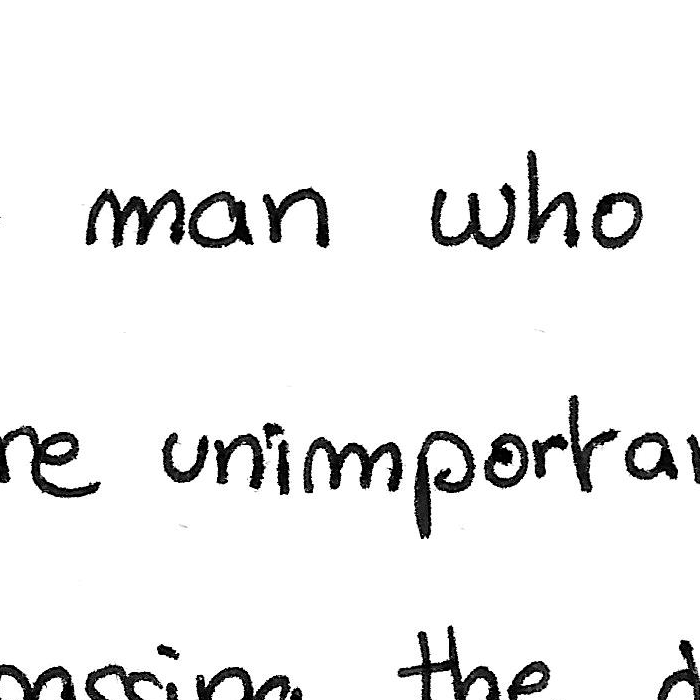 man who
re unimportan
passing the d